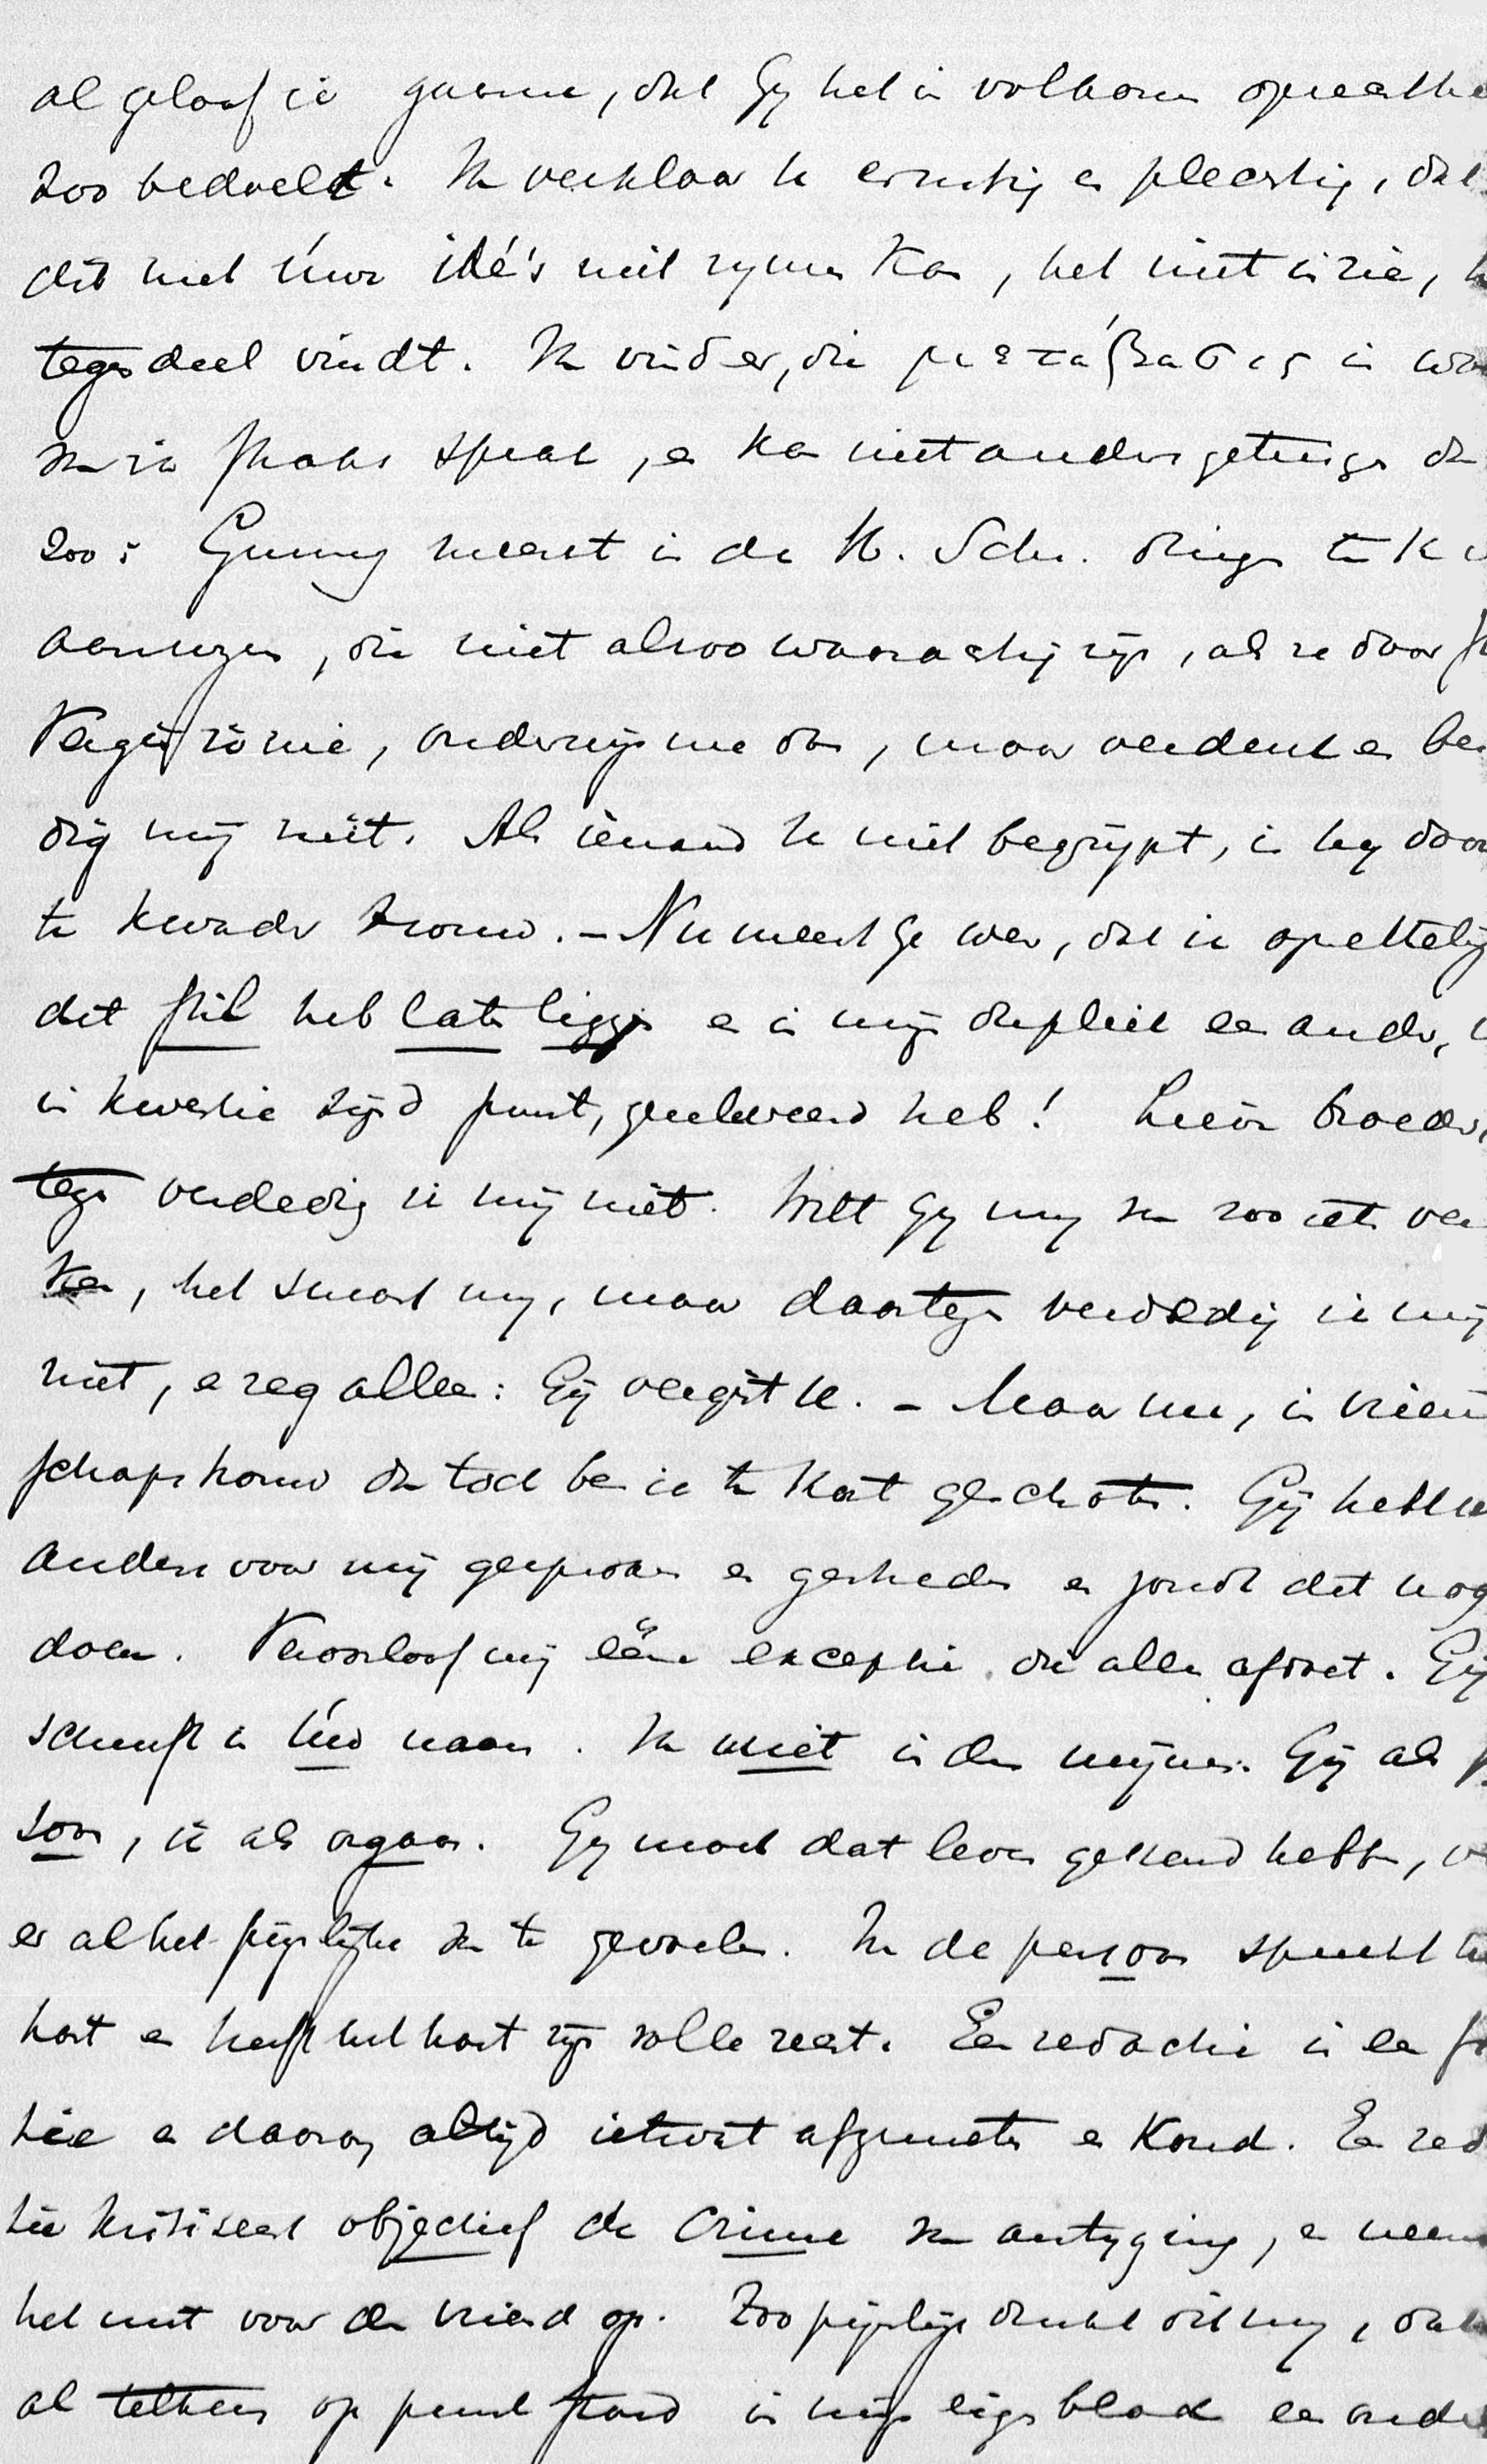 al geloof ik gaarne, dat Gij het in volkomen oprechthe
zoo bedoelt. Ik verklaar U ernstig en plechtig, dat
dit met Úwe idé's niet rijmen kan, het niet inzie, h
tegendeel vindt. Ik vind er, die μετάβασις in wa
van ik straks sprak, en kan niet anders getuigen dan
zoo: Gunning meent in de H. Schr. dingen te k
aanwijzen, die niet alzoo waarachtig zijn, als ze daar st
Vergis ik me, onderwijs me dan, maar verdenk en be
dig mij niet. Als iemand U niet begrijpt, is hij daar
te kwader trouw. – Nu meent Ge wel, dat ik opzettelij
dit stil heb laten liggen en in mijn dupliek een ander,
in kwestie zijnd punt, gereleveerd heb! Lieve broeder,
tegen verdedig ik mij niet. Wilt Gij mij van zoo iets ver
ken, het smart mij, maar daartegen verdedig ik mij
niet, en zeg alleen: Gij vergist U. – Maar nu, in vrien
schapstrouw dan toch ben ik te kort geschoten. Gij hebt u
anders voor mij gesproken en gestreden en zoudt dat nog
doen. Veroorloof mij ééne exceptie die alles afdoet. Gij
schrijft in Úw naam. Ik niet in den mijnen. Gij als p
soon, ik als orgaan. Gij moet dat leven gekend hebben,
er al het pijnlijke van te gevoelen. In de persoon spreekt h
hart en heeft het hart zijn volle recht. Een redactie is een f
tie en daarom altijd ietwat afgemeten en koud. Een red
tie kritiseert objectief de crime van aantijging, en neem
het niet voor den vriend op. Zoo pijnlijk drukt dit mij, dat
al telkens op punt stond in mijn eigen blad een ande